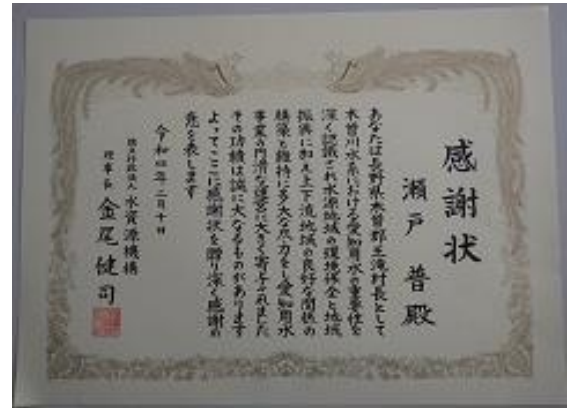 感謝状
瀬戸 普殿
あなたは長野県木曽郡王滝村長として
木曽川水系における愛知用水の重要性を
深く認識され水源地域の環境保全と地域
振興に加え上下流地域の良好な関係の
構築と維持に多大な尽力をし愛知用水
事業の円滑な運営に大きく寄与されました
その功績は誠に大なるものがあります
よってここに感謝状を贈り深く感謝の
意を表します
令和四年二月十日
独立行政法人 水資源機構
理事長 金尾健司